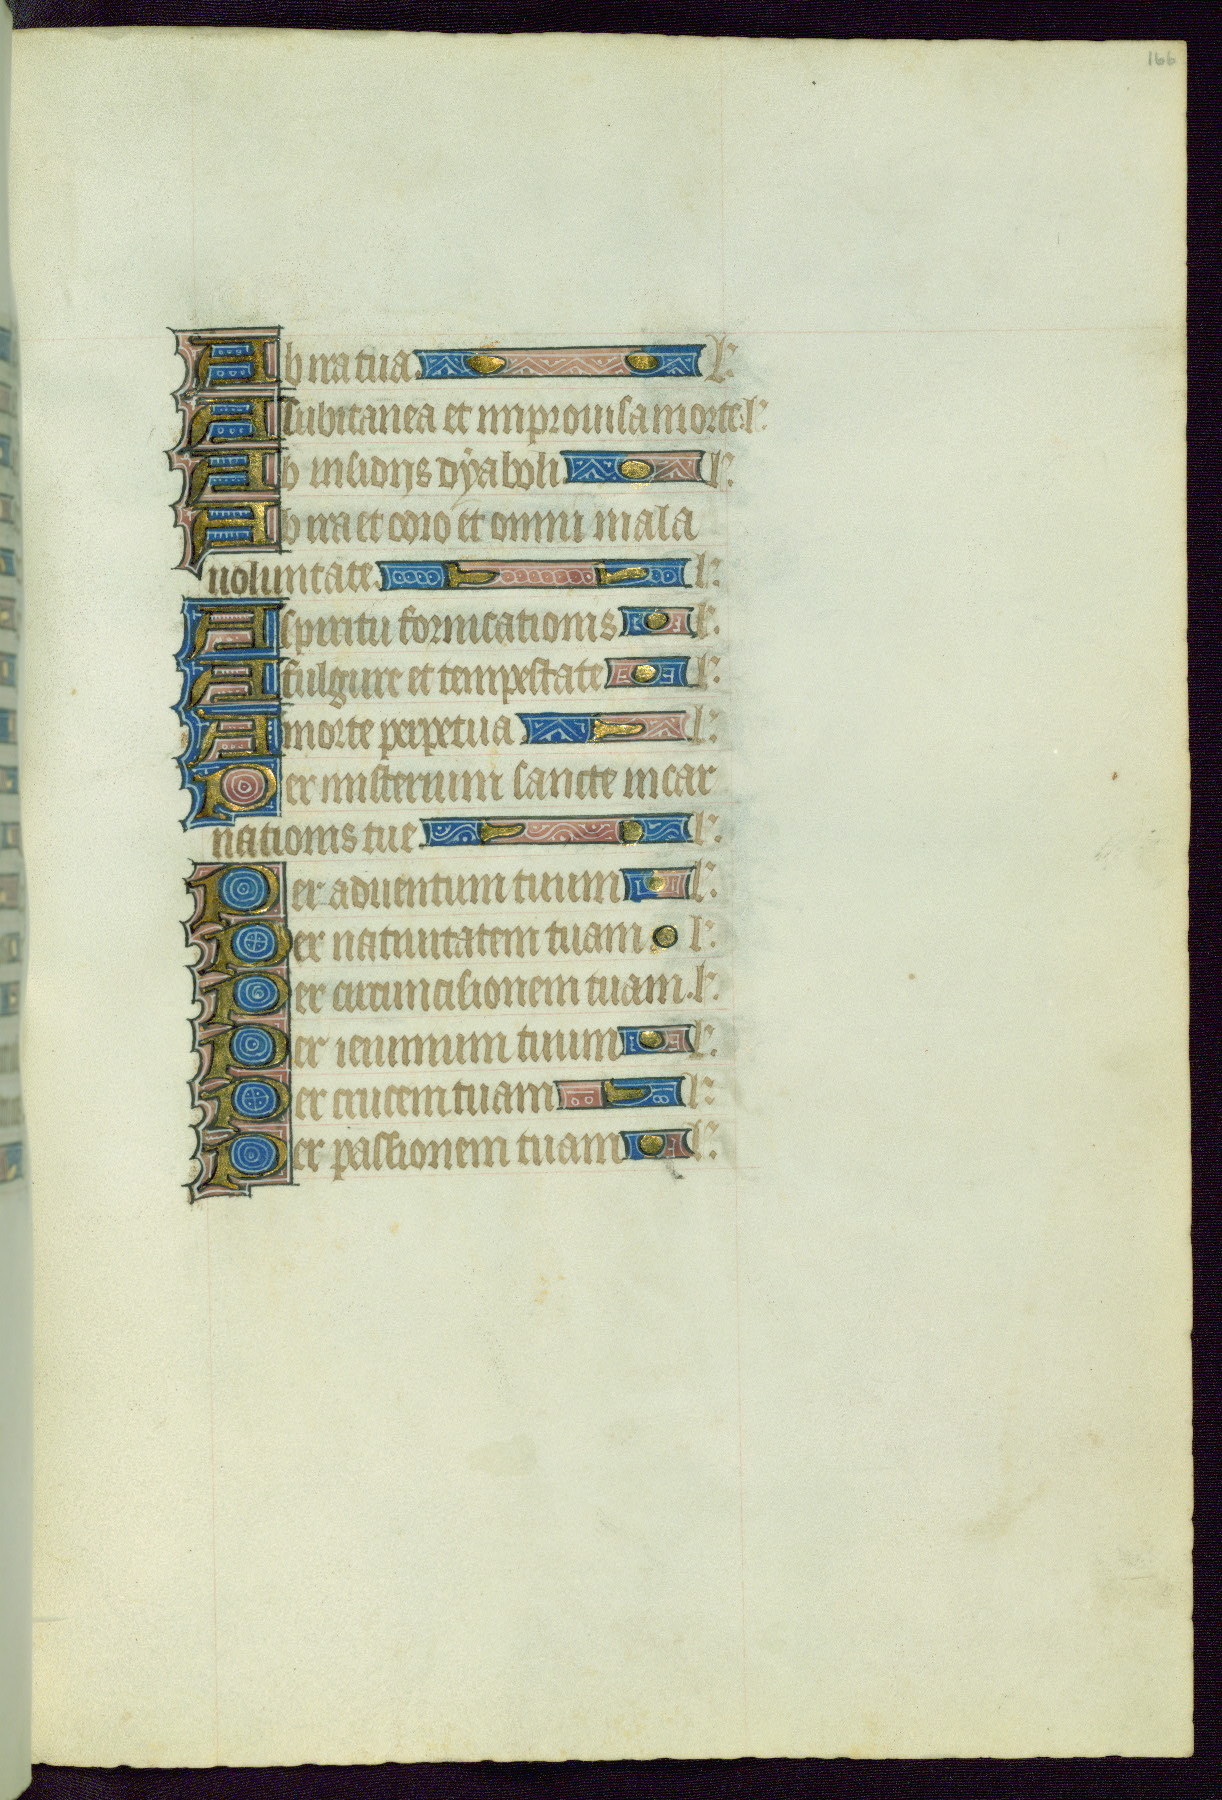 166
Ab ira tua. l:
A subitanea et improuisa morte. l:
Ab insidijs dyaboli. l:
Ab ira et odio et omni mala
uoluntate. l:
A spiritu fornicationis l:
A fulgure et tempestate l:
A morte perpetua l:
Per misterium sancte incar
nationis tue l:
Per aduentum tuum l:
Per natiuitatem tuam. l:
Per circuncisionem tuam. l:
Per ieiunium tuum l:
Per crucem tuam l:
Per passionem tuam l: